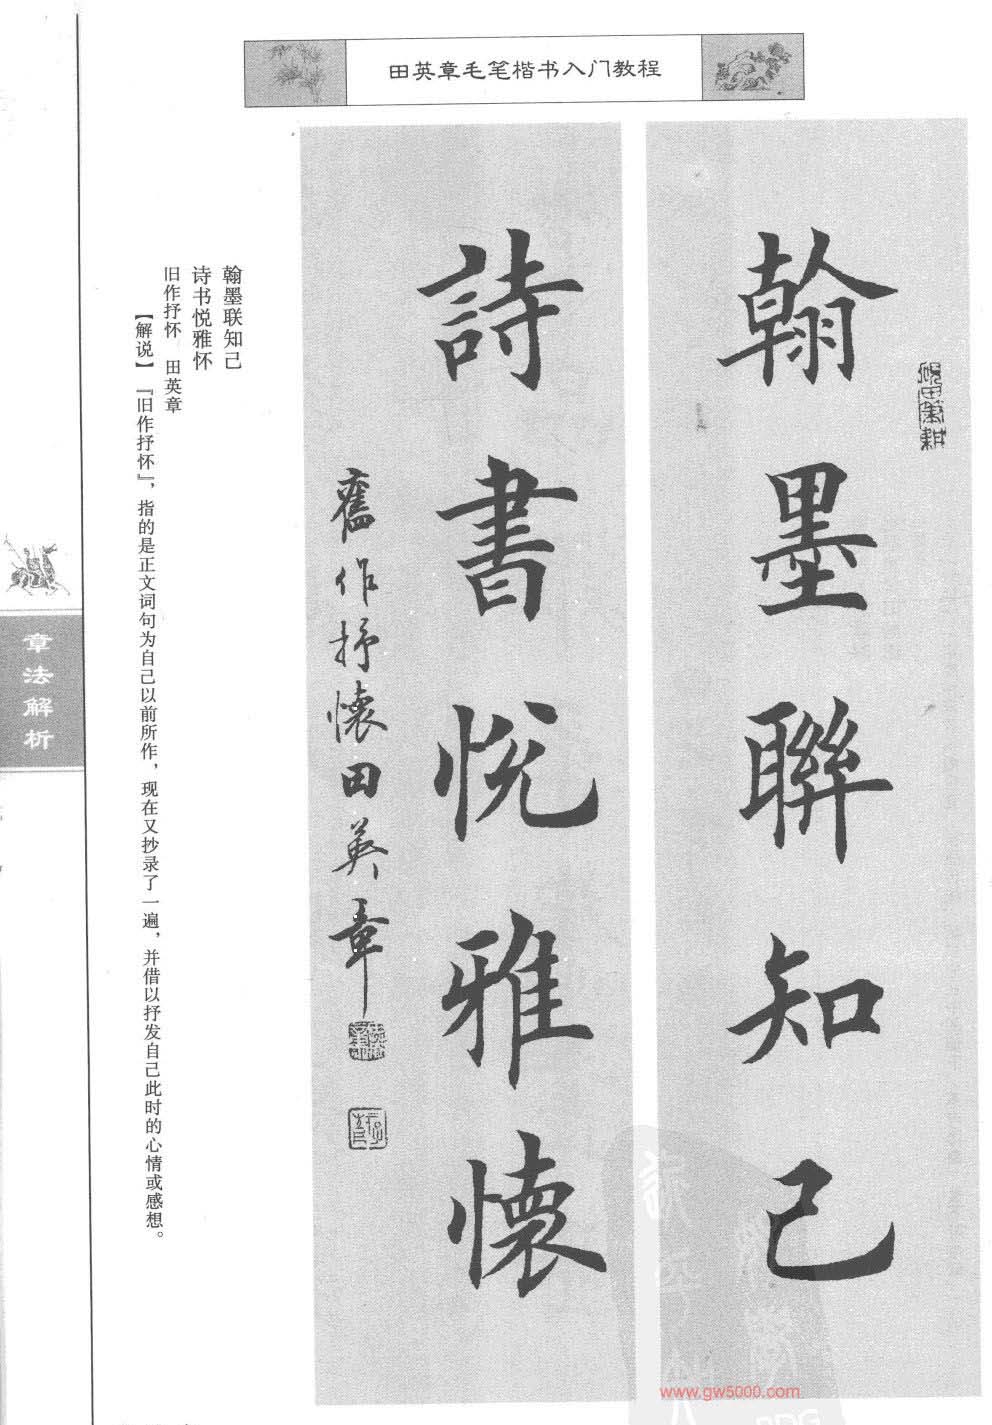 田英章毛笔楷书入门教程
翰墨聯知己
詩書悦雅懷
舊作抒懷田英章
翰墨联知己
诗书悦雅怀
旧作抒怀 田英章
【解说】『旧作抒怀』，指的是正文词句为自己以前所作，现在又抄录了一遍，并借以抒发自己此时的心情或感想。
章法解析
www.gw5000.com